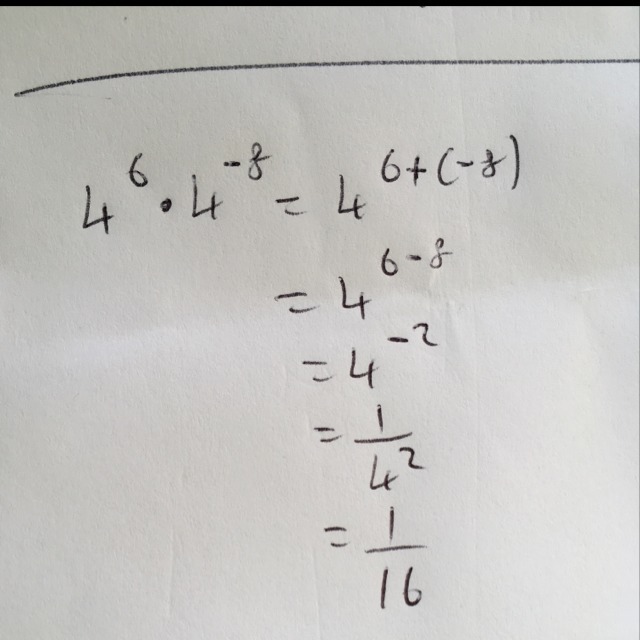 4⁶ · 4⁻⁸ = 4⁶⁺⁽⁻⁸⁾
= 4⁶⁻⁸
= 4⁻²
= 1/4²
= 1/16